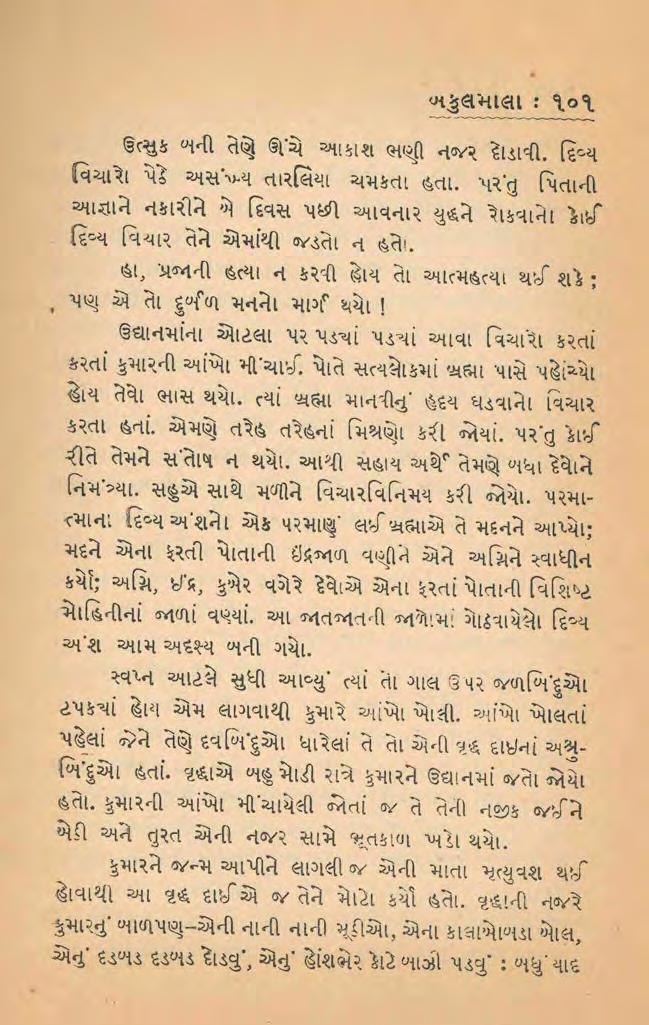 બકુલમાલા : ૧૦૧
ઉત્સુક બની તેણે ઊંચે આકાશ ભણી નજર દોડાવી. દિવ્ય
વિચારો પેઠે અસંખ્ય તારલિયા ચમકતા હતા. પરંતુ પિતાની
આજ્ઞાને નકારીને બે દિવસ પછી આવનાર યુદ્ધને રોકવાનો કોઈ
દિવ્ય વિચાર તેને એમાંથી જડતો ન હતો.
હા, પ્રજાની હત્યા ન કરવી હોય તો આત્મહત્યા થઈ શકે;
પણ એ તો દુર્બળ મનનો માર્ગ થયો !
ઉદ્યાનમાંના ઓટલા પર પડ્યાં પડ્યાં આવા વિચારો કરતાં
કરતાં કુમારની આંખો મીંચાઈ. પોતે સત્યલોકમાં બ્રહ્મા પાસે પહોંચ્યો
હોય તેવો ભાસ થયો. ત્યાં બ્રહ્મા માનવીનું હૃદય ઘડવાનો વિચાર
કરતા હતાં. એમણે તરેહ તરેહનાં મિશ્રણો કરી જોયાં. પરંતુ કોઈ
રીતે તેમને સંતોષ ન થયો. આથી સહાય અર્થે તેમણે બધા દેવોને
નિમંત્ર્યા. સહુએ સાથે મળીને વિચારવિનિમય કરી જોયો. પરમા-
ત્માના દિવ્ય અંશનો એક પરમાણું લઈ બ્રહ્માએ તે મદનને આપ્યો;
મદને એના ફરતી પોતાની ઇંદ્રજાળ વણીને એને અગ્નિને સ્વાધીન
કર્યો; અગ્નિ, ઈંદ્ર, કુબેર વગેરે દેવોએ એના ફરતાં પોતાની વિશિષ્ટ
મોહિનીનાં જાળાં વણ્યાં. આ જાતજાતની જાળોમાં ગોઠવાયેલો દિવ્ય
અંશ આમ અદૃશ્ય બની ગયો.
સ્વપ્ન આટલે સુધી આવ્યું ત્યાં તો ગાલ ઉપર જળબિંદુઓ
ટપક્યાં હોય એમ લાગવાથી કુમારે આંખો ખોલી. આંખો ખોલતાં
પહેલાં જેને તેણે દવબિંદુઓ ધારેલાં તે તો એની વૃદ્ધ દાઇનાં અશ્રુ-
બિંદુઓ હતાં. વૃદ્ધાએ બહુ મોડી રાત્રે કુમારને ઉદ્યાનમાં જતો જોયો
હતો. કુમારની આંખો મીંચાયેલી જોતાં જ તે તેની નજીક જઈને
બેઠી અને તુરત એની નજર સામે ભૂતકાળ ખડો થયો.
કુમારને જન્મ આપીને લાગલી જ એની માતા મૃત્યુવશ થઈ
હોવાથી આ વૃદ્ધ દાઈએ જ તેને મોટો કર્યો હતો. વૃદ્ધાની નજરે
કુમારનું બાળપણ–એની નાની નાની મૂઠીઓ, એના કાલાબોબડા બોલ,
એનું દડબડ દડબડ દોડવું, એનું હોંશભેર કોટે બાઝી પડવું : બધું યાદ